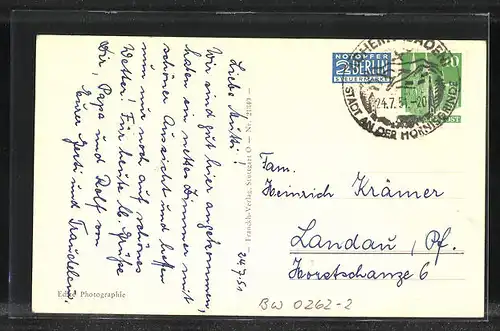 24.7.51
Liebe Mutti!
Wir sind gut hier angekommen,
haben ein nettes Zimmer mit
schöner Aussicht und hoffen
nun nur noch auf schönes
Wetter! Für heute lb. Grüße
Dir, Papa und Rolf von
Eurer Gerti und Traudelein.
Echte Photographie
Franckh-Verlag, Stuttgart O
NOTOPFER
2 BERLIN
STEUERMARKE
24.7.51.-20
STADT AN DER HORNISGRINDE
Fam.
Heinrich Krämer
Landau, Pf.
Horstschanze 6
BW 0262-2